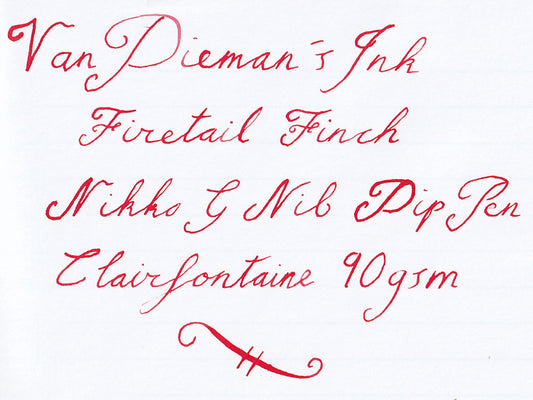 Van Dieman's Ink
Firetail Finch
Nikko G Nib Dip Pen
Clairfontaine 90gsm